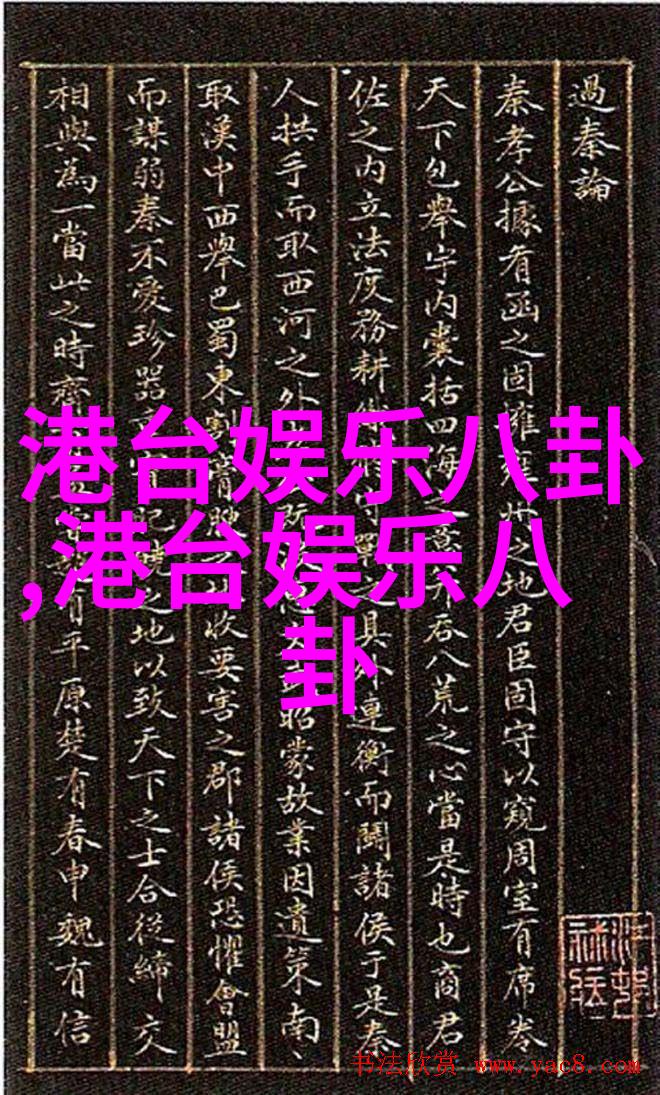 過秦論
秦孝公據有函之固擁雍州之地君臣固守以窺周室有席卷
天下包舉宇内囊括四海之意并吞八荒之心當是時也商君
佐之内立法度務耕織修守戰之具外連衡而鬬諸侯于是秦
人拱手而取西河之外
昭蒙故業因遺策南
取漢中西舉巴蜀東割膏腴之
收要害之郡諸侯恐懼會盟
而謀弱秦不愛珍器
之地以致天下之士合從締交
相與為一當此之時齊
有平原楚有春申魏有信
港台娱乐八卦
,港台娱乐八
卦
书法欣赏 www.yac8.com